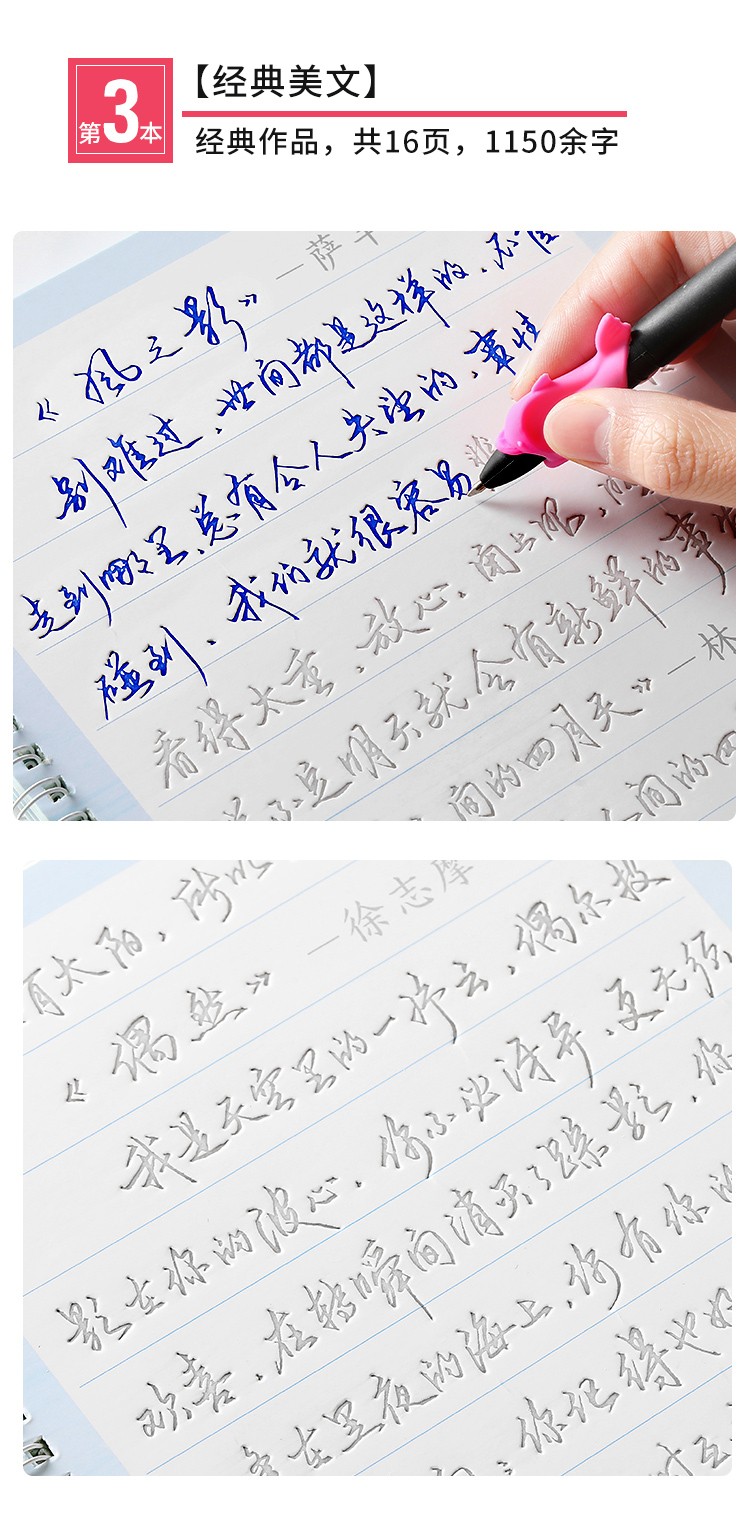 第3本
【经典美文】
经典作品，共16页，1150余字
—萨
《风之影》
别难过、世间都是这样的、不管
走到哪里、总有令人失望的、事情
碰到、我们就很容易
看得太重、放心、闭上眼、
定明天就会有新鲜的事
—林
间的四月天》
人间的四
太阳、所以
—徐志摩
《偶然》
我是天空里的一片云、偶尔投
影在你的波心、你不必讶异、更无须
欢喜、在转瞬间消灭了踪影、你
在黑夜的海上、你有你的
你记得也好